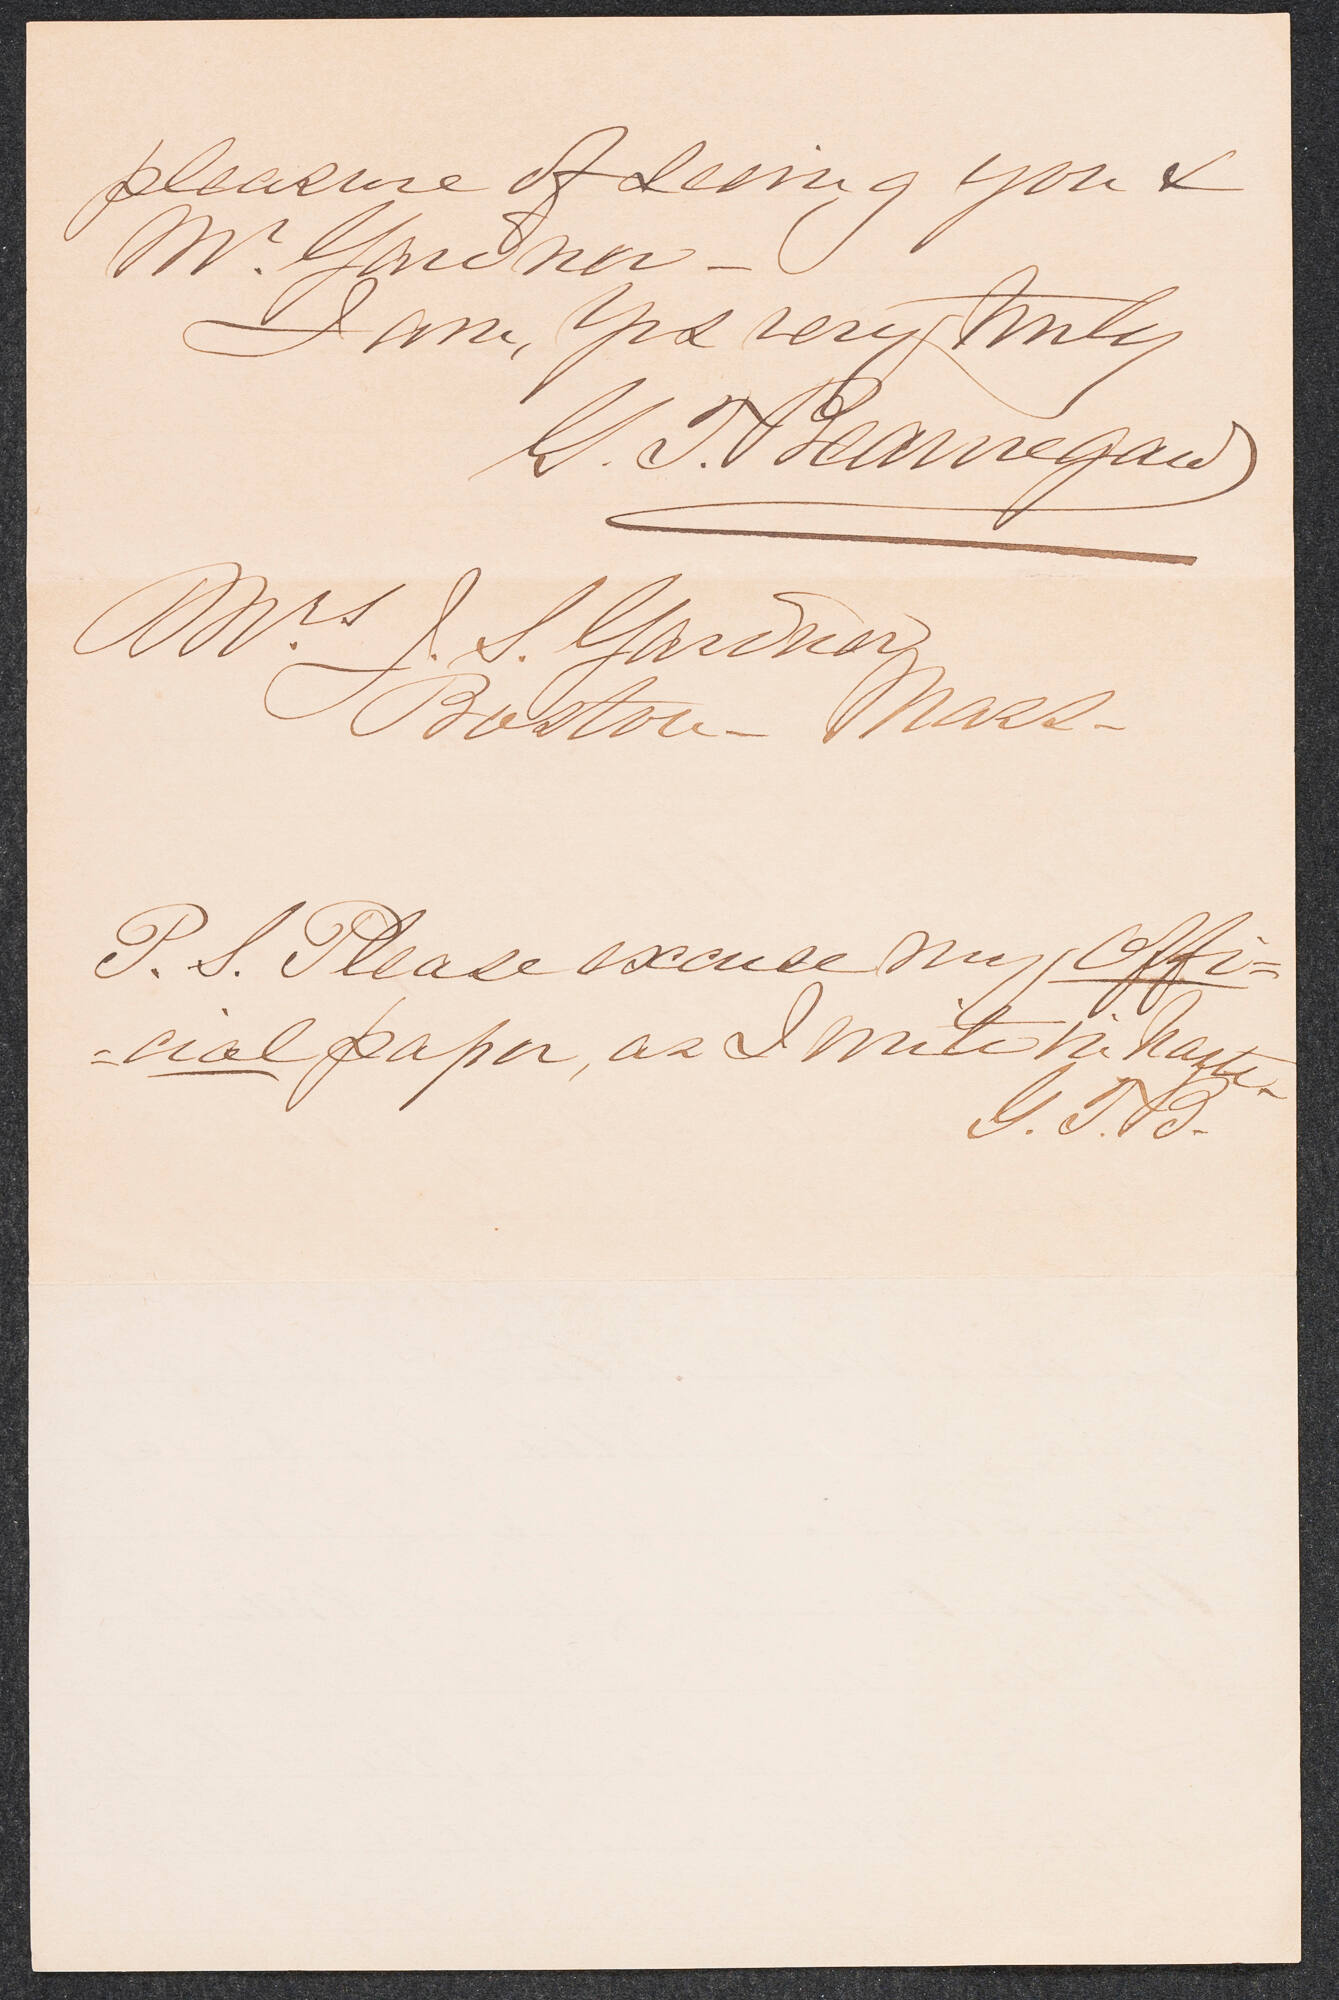 pleasure of seeing you &
Mr. Gardner –
I am, Yrs very truly
G. T. Beauregard
Mrs. J. S. Gardner
Boston – Mass –
P. S. Please excuse my offi=
=cial paper, as I write in haste –
G. T. B.